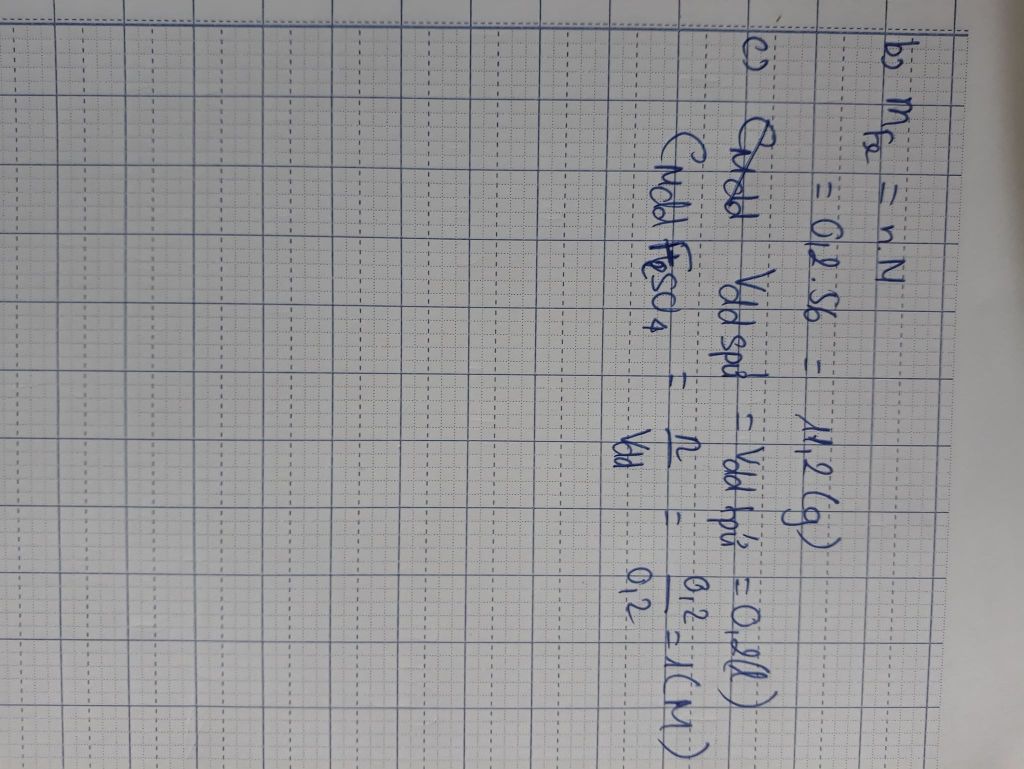 b) mFe = n.M
= 0,2.56 = 11,2(g)
c) CMdd Vdd spứ = Vdd tpứ = 0,2(l)
CMdd FeSO4 = n/Vdd = 0,2/0,2 = 1(M)